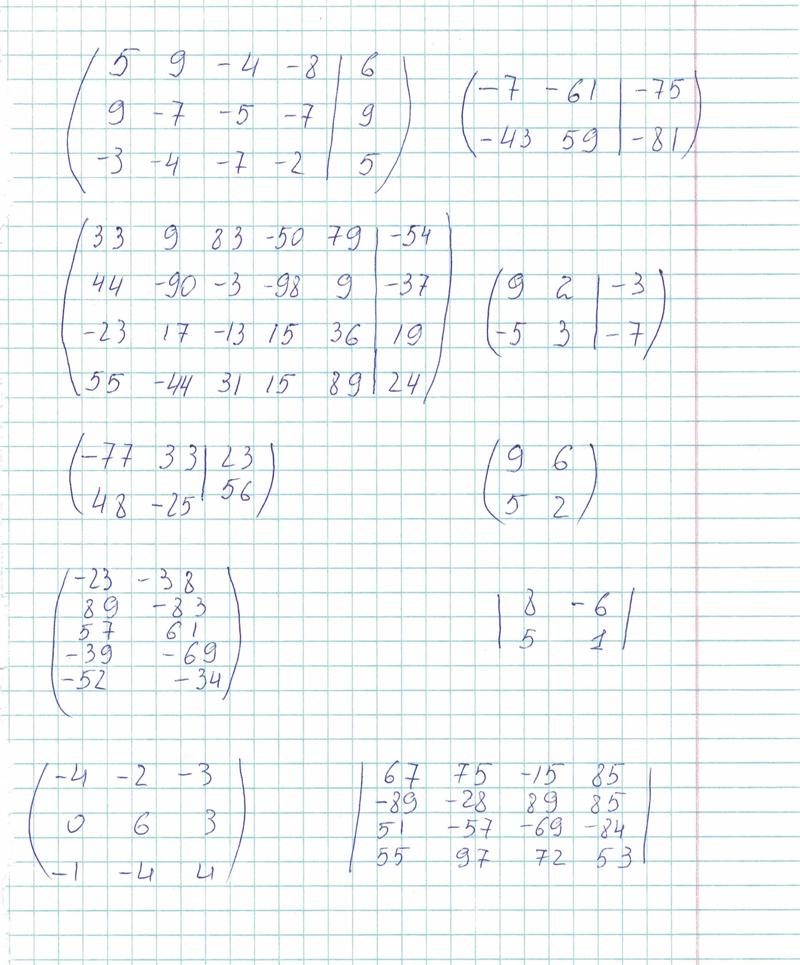 5 9 -4 -8 | 6
9 -7 -5 -7 | 9
-3 -4 -7 -2 | 5
-7 -61 | -75
-43 59 | -81
33 9 83 -50 79 | -54
44 -90 -3 -98 9 | -37
-23 17 -13 15 36 | 19
55 -44 31 15 89 | 24
9 2 | -3
-5 3 | -7
-77 33 | 23
48 -25 | 56
9 6
5 2
-23 -38
89 -83
57 61
-39 -69
-52 -34
8 -6
5 1
-4 -2 -3
0 6 3
-1 -4 4
67 75 -15 85
-89 -28 89 85
51 -57 -69 -84
55 97 72 53